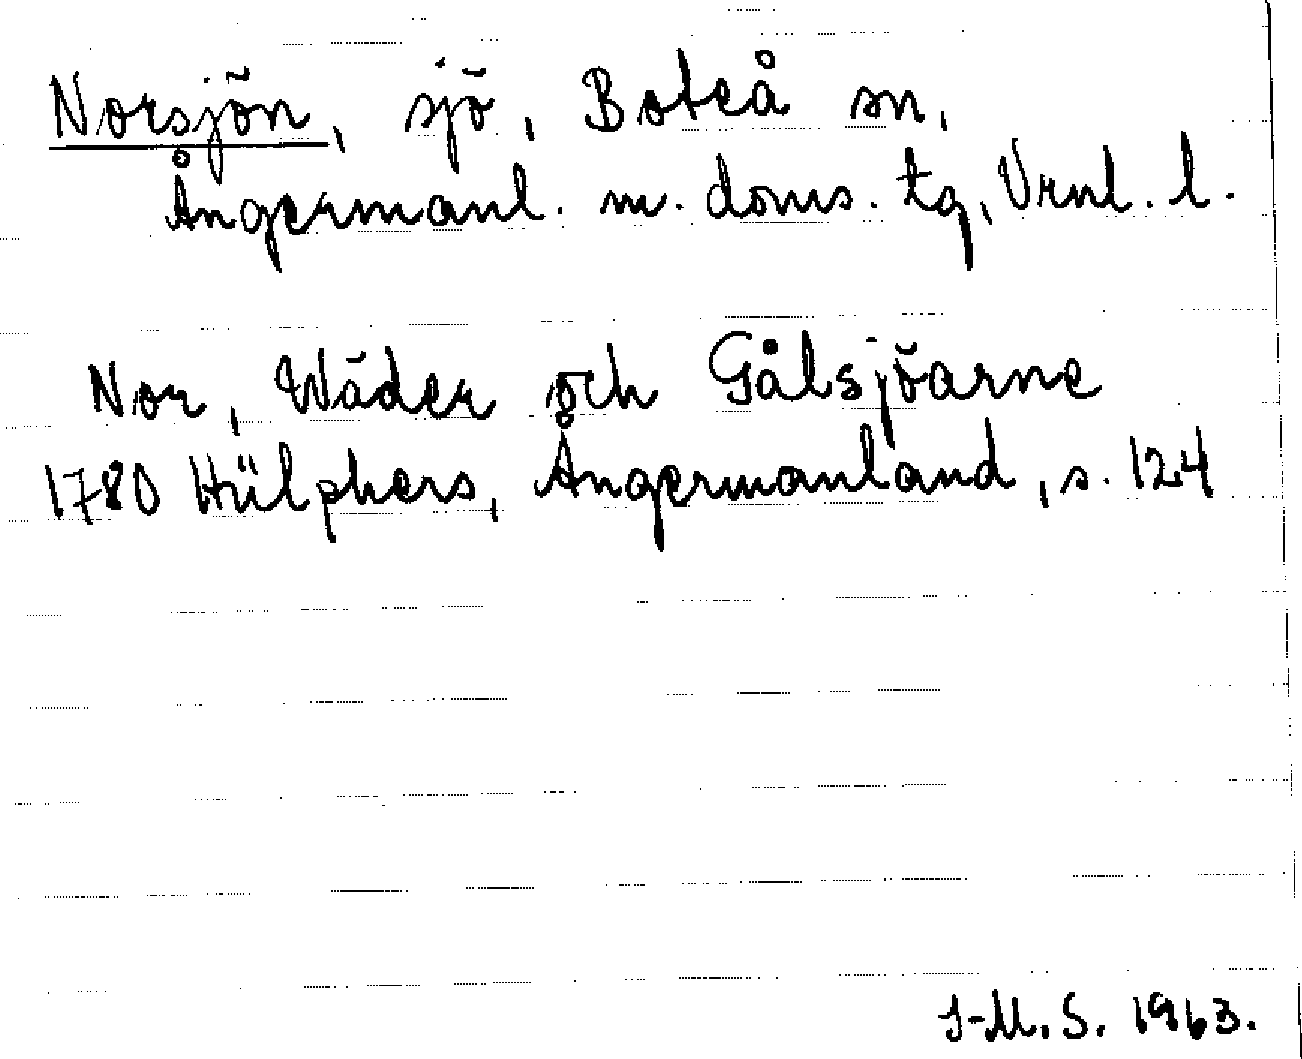 Norsjön, sjö, Boteå sn,
Ångermanl. m. doms. tg, Vrnl. l.
Nor, Wäder och Gålsjöarne
1780 Hülphers, Ångermanland, s. 124
I-M. S. 1963.